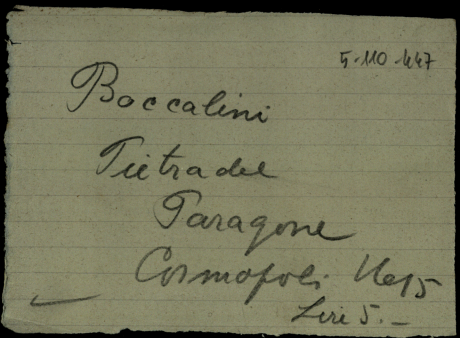 5-110-447
Boccalini
Pietra del
Paragone
Cosmopoli 1615
Lire 5.-